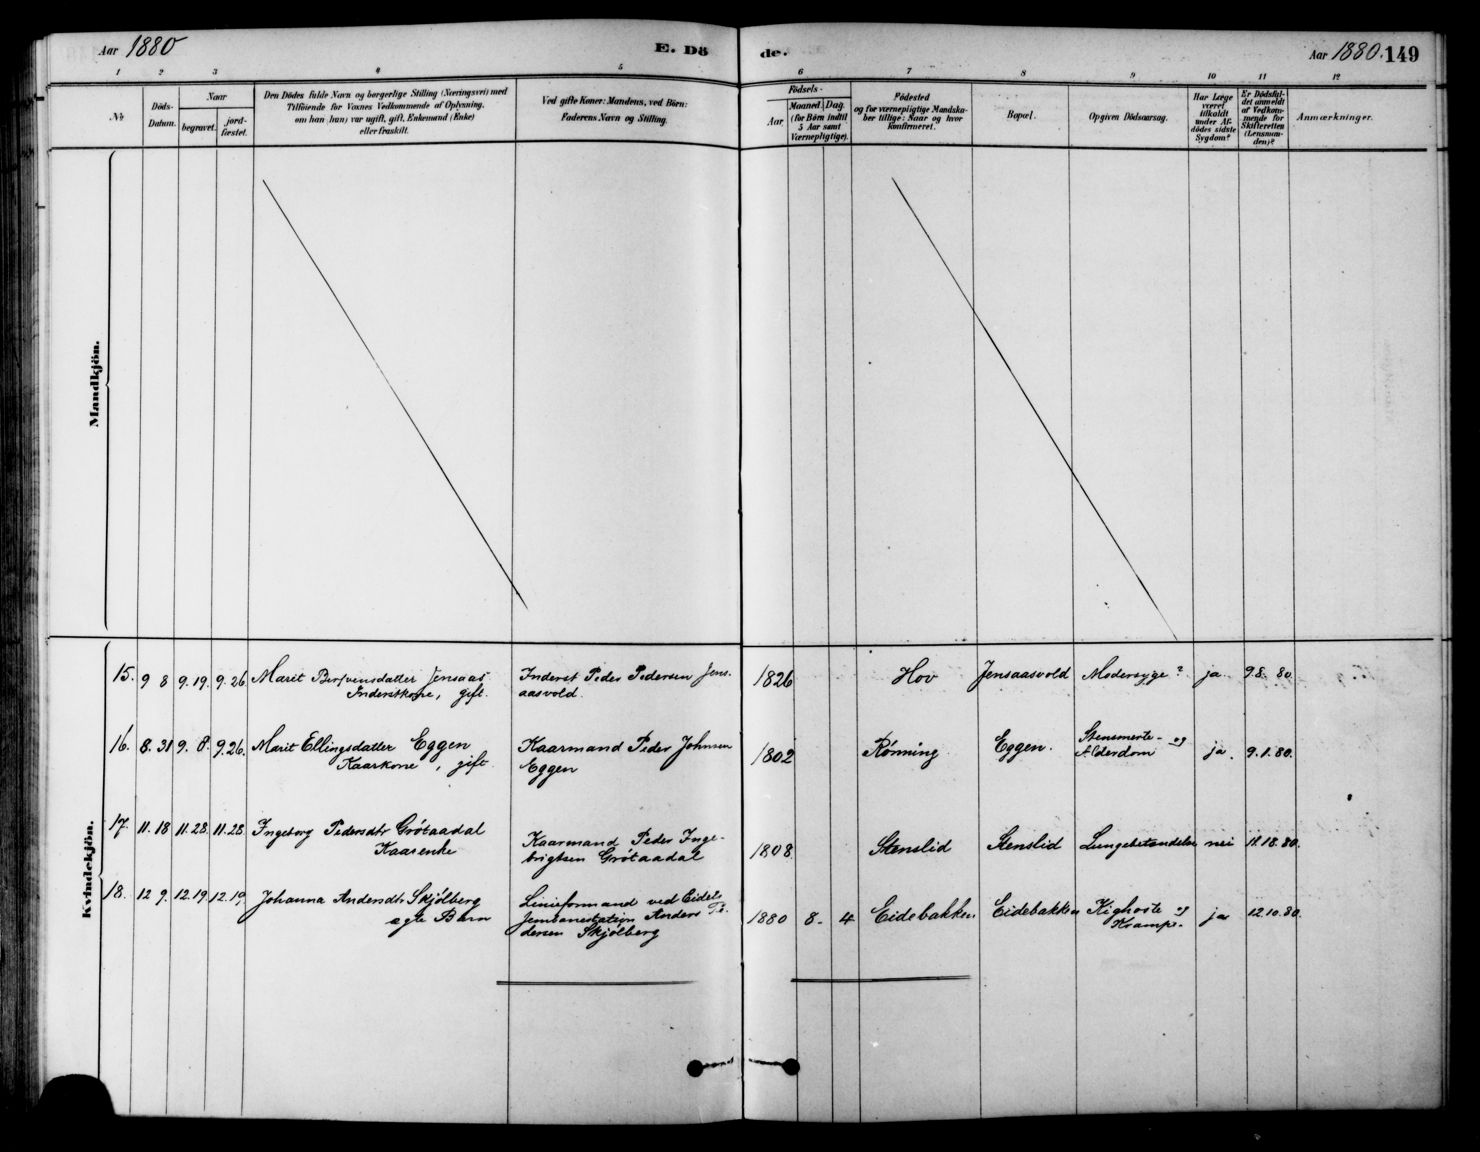 Aar 1880
E. Dö
de.
Aar 1880. 149
1 2 3 4 5 6 7 8 9 10 11 12
No
Döds-
Datum.
Naar
begravet.
jord-
fæstet.
Den Dödes fulde Navn og borgerlige Stilling (Næringsvei) med
Tilföiende for Voxnes Vedkommende af Oplysning,
om han (hun) var ugift, gift, Enkemand (Enke)
eller fraskilt.
Ved gifte Koner: Mandens, ved Börn:
Faderens Navn og Stilling.
Födsels-
Aar
Maaned. Dag.
(for Börn indtil
5 Aar samt
Værnepligtige).
Födested
og for værnepligtige Mandska-
ber tillige: Naar og hvor
konfirmeret.
Bopæl.
Opgiven Dödsaarsag.
Har Læge
været
tilkaldt
under Af-
dödes sidste
Sygdom?
Er Dödsfal-
det anmeldt
af Vedkom-
mende for
Skifteretten
(Lensman-
den)?
Anmærkninger.
Mandkjön.
Kvindekjön.
15. 9 8 9.19. 9.26. Marit Jensaas Inderst Peder Pedersen Jens- 1826 Hov Jensaasvold Modersyge? ja 9.8.80.
Inderstkone, gift. aasvold.
16. 8.31 9.8. 9.26. Marit Ellingsdatter Eggen Kaarmand Peder Johnsen 1802 Rönning Eggen. og ja. 9.1.80.
Kaarkone, gift. Eggen Alderdom
17. 11.18 11.28. 11.28. Ingeborg Pedersdtr Grötaadal Kaarmand Peder Inge- 1808. Stenslid Stenslid nei 11.18.80.
Kaarenke brigtsen Grötaadal
18. 12 9. 12.19. 12.19. Johanna Andersdtr Skjölberg Linieformand ved Eidets 1880 8- 4 Eidebakken Eidebakken Kighoste og ja 12.10.80.
ægte Barn Jernbanestation Anders Pe- Krampe.
dersen Skjölberg